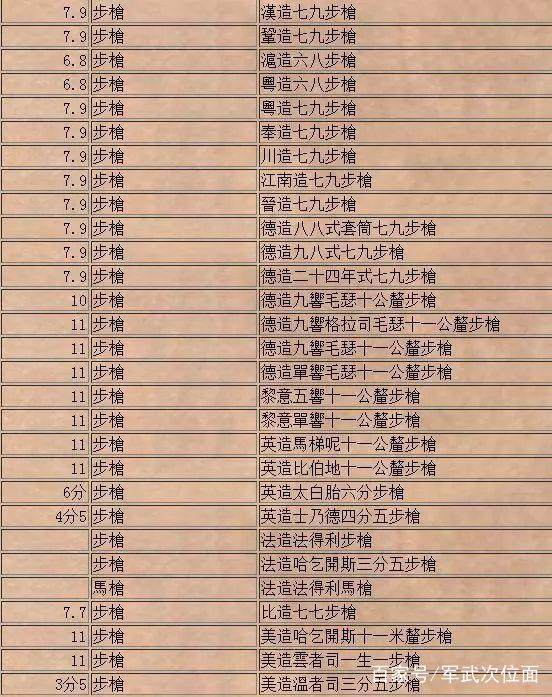 7.9 步槍 漢造七九步槍
7.9 步槍 鞏造七九步槍
6.8 步槍 滬造六八步槍
6.8 步槍 粵造六八步槍
7.9 步槍 粵造七九步槍
7.9 步槍 奉造七九步槍
7.9 步槍 川造七九步槍
7.9 步槍 江南造七九步槍
7.9 步槍 晉造七九步槍
7.9 步槍 德造八八式套筒七九步槍
7.9 步槍 德造九八式七九步槍
7.9 步槍 德造二十四年式七九步槍
10 步槍 德造九響毛瑟十公釐步槍
11 步槍 德造九響格拉司毛瑟十一公釐步槍
11 步槍 德造九響毛瑟十一公釐步槍
11 步槍 德造單響毛瑟十一公釐步槍
11 步槍 黎意五響十一公釐步槍
11 步槍 黎意單響十一公釐步槍
11 步槍 英造馬梯呢十一公釐步槍
11 步槍 英造比伯地十一公釐步槍
6分 步槍 英造太白胎六分步槍
4分5 步槍 英造士乃德四分五步槍
步槍 法造法得利步槍
步槍 法造哈乞開斯三分五步槍
馬槍 法造法得利馬槍
7.7 步槍 比造七七步槍
11 步槍 美造哈乞開斯十一米釐步槍
11 步槍 美造雲者司一生一步槍
3分5 步槍 美造溫者司三分五步槍
百家号/军武次位面